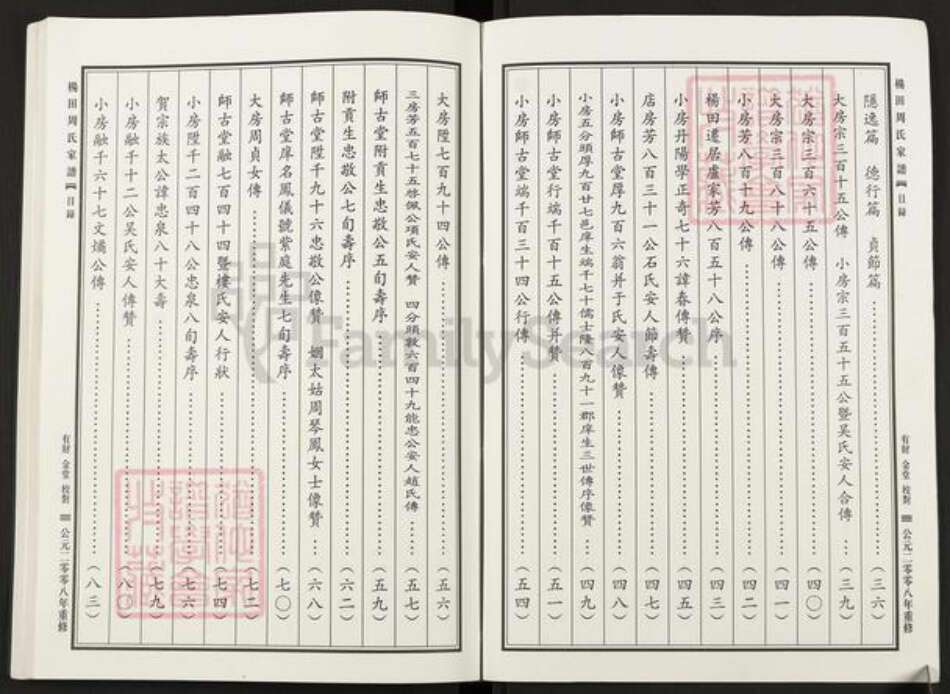 楊田周氏家譜 目錄
隱逸篇 德行篇 貞節篇 …… (三六)
大房宗三百十五公傳 小房宗三百五十五公暨吴氏安人合傳 … (三九)
大房宗三百六十五公傳 …… (四〇)
大房宗三百八十八公傳 …… (四一)
小房芳八百十九公傳 …… (四二)
楊田遷居盧家芳八百五十八公序 …… (四三)
小房丹陽學正奇七十六諱春傳贊 …… (四五)
店房芳八百三十一公石氏安人節壽傳 …… (四七)
小房師古堂厚九百六翁并于氏安人像贊 …… (四八)
小房五分頭厚九百廿七邑庠生端千七十儒士陸八百九十一郡庠生三世傳序像贊 … (四九)
小房師古堂行端千百十五公傳并贊 …… (五一)
小房師古堂端千百三十四公行傳 …… (五四)
有財 金堂 校對 公元二零零八年重修
大房陞七百九十四公傳 …… (五六)
三房芳五百七十五啓佩公項氏安人贊 四分頭敦六百四十九能忠公安人趙氏傳 …… (五七)
師古堂附貢生忠敬公五旬壽序 …… (五九)
附貢生忠敬公七旬壽序 …… (六二)
師古堂陞千九十六忠敬公像贊 姻太姑周琴鳳女士像贊 … (六八)
師古堂庠名鳳儀號紫庭先生七旬壽序 …… (七〇)
大房周貞女傳 …… (七二)
師古堂融七百四十四暨樓氏安人行狀 …… (七四)
小房陞千二百四十八公忠泉八旬壽序 …… (七六)
賀宗族太公諱忠泉八十大壽 …… (七九)
小房融千十二公吴氏安人傳贊 …… (八〇)
小房融千六十七文燏公傳 …… (八三)
楊田周氏家譜 目錄
有財 金堂 校對 公元二零零八年重修
FamilySearch